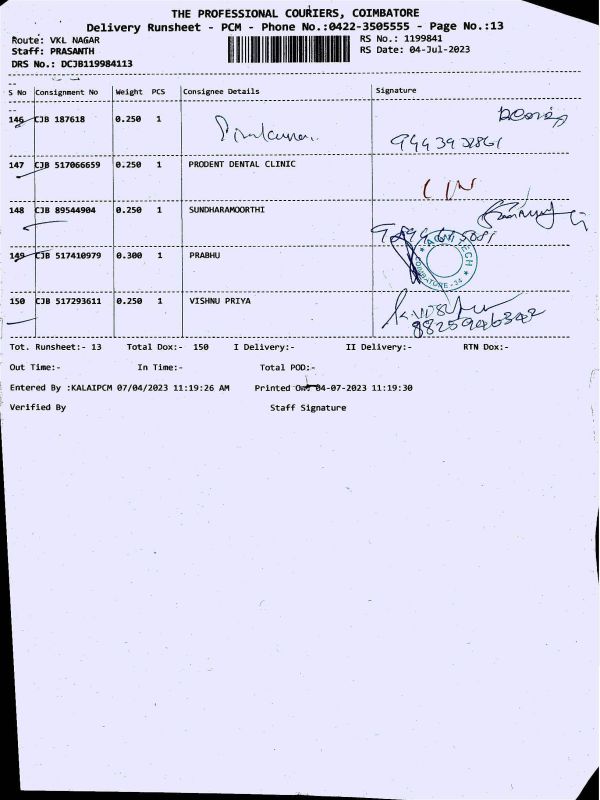 THE PROFESSIONAL COURIERS, COIMBATORE
Delivery Runsheet - PCM - Phone No.:0422-3505555 - Page No.:13
Route: VKL NAGAR RS No.: 1199841
Staff: PRASANTH RS Date: 04-Jul-2023
DRS No.: DCJB119984113
S No Consignment No Weight PCS Consignee Details Signature
146 CJB 187618 0.250 1
147 CJB 517066659 0.250 1 PRODENT DENTAL CLINIC
148 CJB 89544904 0.250 1 SUNDHARAMOORTHI
149 CJB 517410979 0.300 1 PRABHU
150 CJB 517293611 0.250 1 VISHNU PRIYA
8825946342
Tot. Runsheet:- 13 Total Dox:- 150 I Delivery:- II Delivery:- RTN Dox:-
Out Time:- In Time:- Total POD:-
Entered By :KALAIPCM 07/04/2023 11:19:26 AM Printed On: 04-07-2023 11:19:30
Verified By Staff Signature